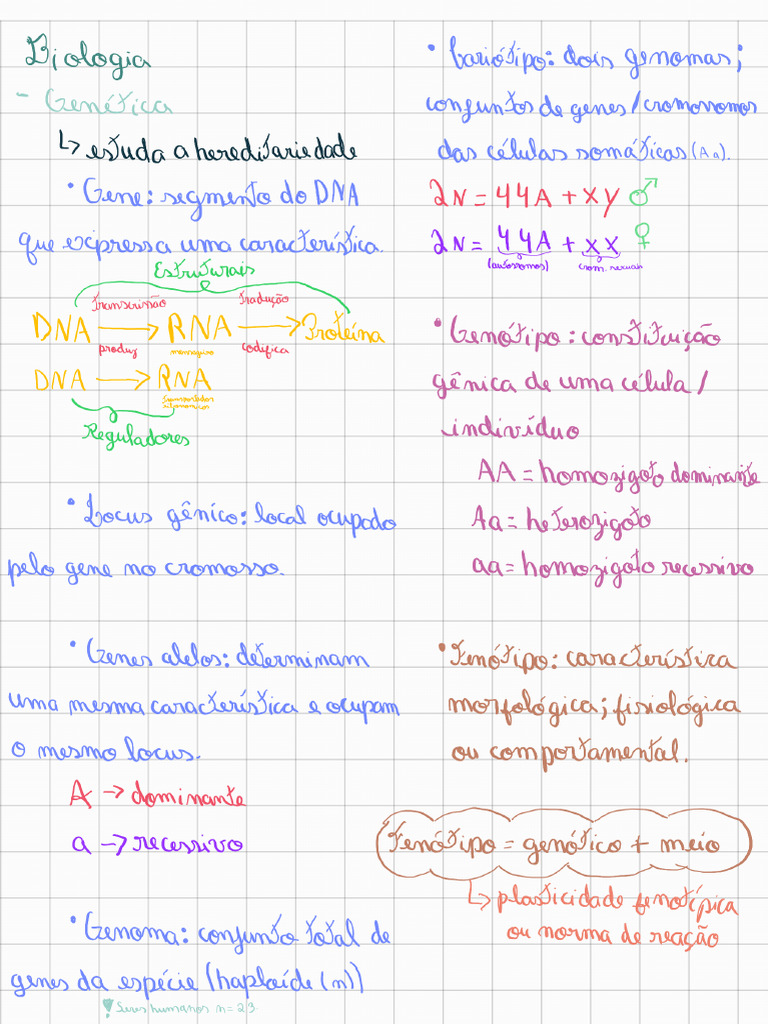 Biologia
- Genética
↳ estuda a hereditariedade
• Gene: segmento do DNA
que expressa uma característica.
Estruturais
DNA transcrisão → produz RNA mensageiro tradução → codifica Proteína
DNA → RNA
Reguladores
• Locus gênico: local ocupado
pelo gene no cromosso.
• Genes alelos: determinam
uma mesma característica e ocupam
o mesmo locus.
A → dominante
a → recessivo
• Genoma: conjunto total de
genes da espécie (haploíde (n))
! Seres humanos n = 23
• Cariótipo: dois genomas;
conjuntos de genes/cromossomos
das células somáticas (Aa).
2N = 44A + xy ♂
2N = 44A + xx ♀
(autossomos) crom. sexuais
• Genótipo: constituição
gênica de uma célula/
indivíduo
AA = homozigoto dominante
Aa = heterozigoto
aa = homozigoto recessivo
• Fenótipo: característica
morfológica; fisiológica
ou comportamental.
Fenótipo = genótico + meio
↳ plasticidade fenotípica
ou norma de reação